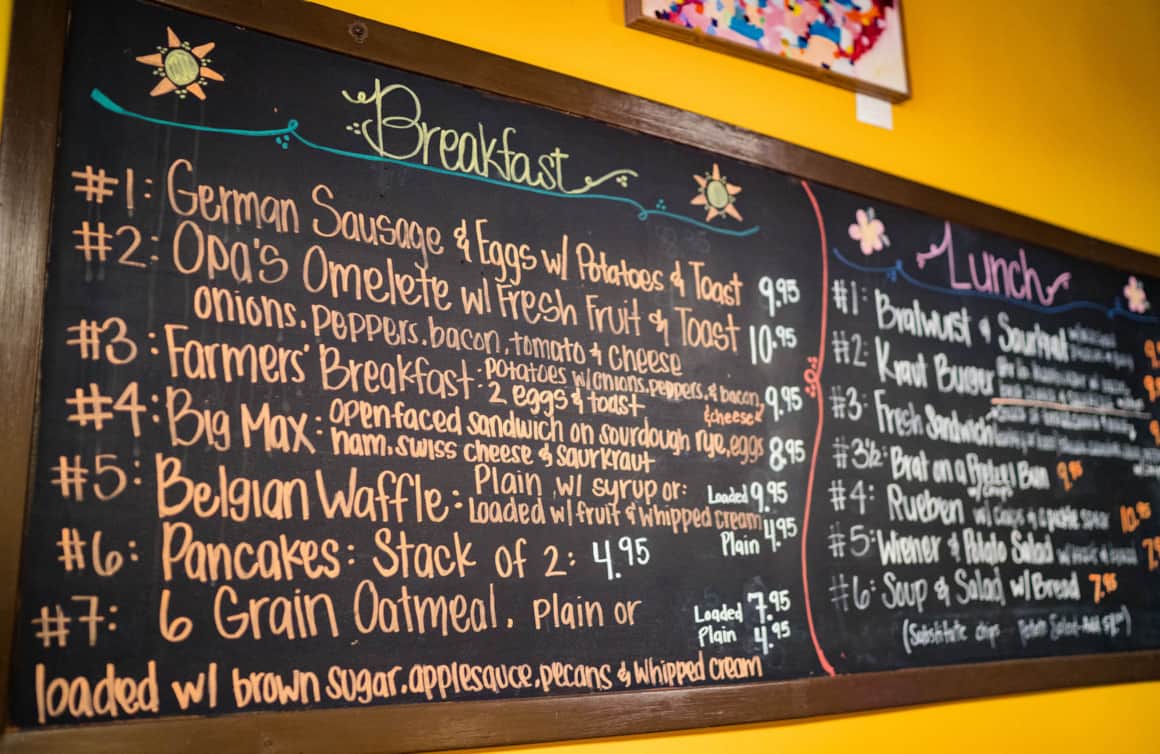 Breakfast
#1: German Sausage & Eggs w/ Potatoes & Toast 9.95
#2: Opa's Omelete w/ Fresh Fruit & Toast 10.95
onions, peppers, bacon, tomato & cheese
#3: Farmers' Breakfast - potatoes w/ onions, peppers, & bacon,
2 eggs & toast & cheese 9.95
#4: Big Max: open-faced sandwich on sourdough rye, eggs
ham, swiss cheese & saurkraut 8.95
#5: Belgian Waffle: Plain w/ syrup or: Loaded 9.95
Loaded w/ fruit & whipped cream Plain 4.95
#6: Pancakes: Stack of 2: 4.95
#7: 6 Grain Oatmeal, Plain or Loaded 7.95
Plain 4.95
loaded w/ brown sugar, applesauce, pecans & whipped cream
Lunch
#1: Bratwurst & Sourkraut
#2: Kraut Burger
#3: Fresh Sandwich
#3½: Brat on a Pretzel Bun 9.95
w/ chips
#4: Rueben w/ chips & a pickle spear 10.95
#5: Wiener & Potato Salad
#6: Soup & Salad w/ Bread 7.95
(Substitute chips Potato Salad Add